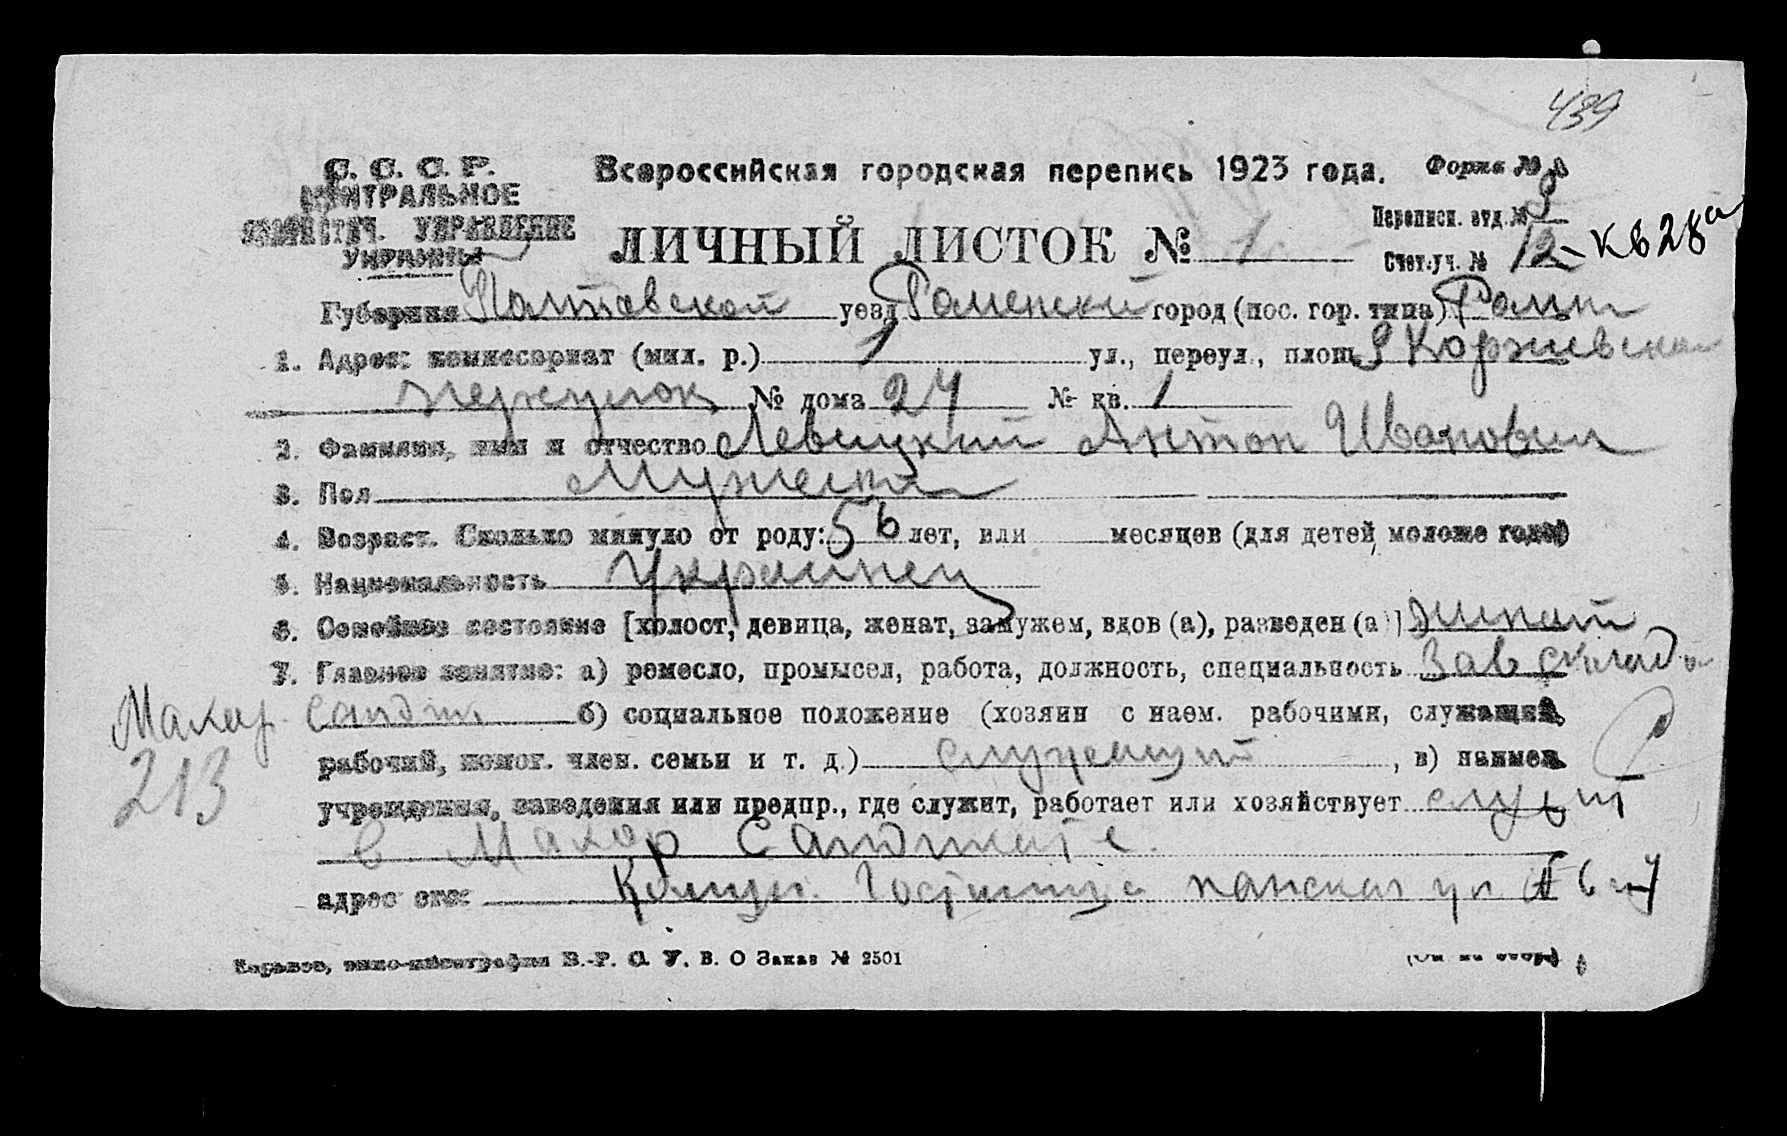 439
С. С. С. Р.
ЦЕНТРАЛЬНОЕ
СТАТИСТИЧ. УПРАВЛЕНИЕ
УКРАИНЫ
Всероссийская городская перепись 1923 года.
Форма № А
ЛИЧНЫЙ ЛИСТОК № 1
Переписн. отд. № 9
Счет. уч. № 12 - кв 28а
Губерния Полтавской уезд Роменский город (пос. гор. типа) Ромны
1. Адрес: комиссариат (мил. р.) 1 ул., переул., площ. 9 Коржевской
переулок № дома 24 № кв. 1
2. Фамилия, имя и отчество Левицкий Антон Иванович
3. Пол Мужской
4. Возраст. Сколько минуло от роду: 56 лет, или месяцев (для детей моложе года)
5. Национальность Украинец
6. Семейное состояние [холост, девица, женат, замужем, вдов (а), разведен (а)] женат
7. Главное занятие: а) ремесло, промысел, работа, должность, специальность Зав склада
Махор. Синдик б) социальное положение (хозяин с наем. рабочими, служащий,
рабочий, помог. член. семьи и т. д.) служащий, в) наимен.
213
учреждения, заведения или предпр., где служит, работает или хозяйствует служит
в Махор Синдикате.
адрес его: Комун. Гостиница
Харьков, типо-литография В.-Р. С. У. В. О Заказ № 2501